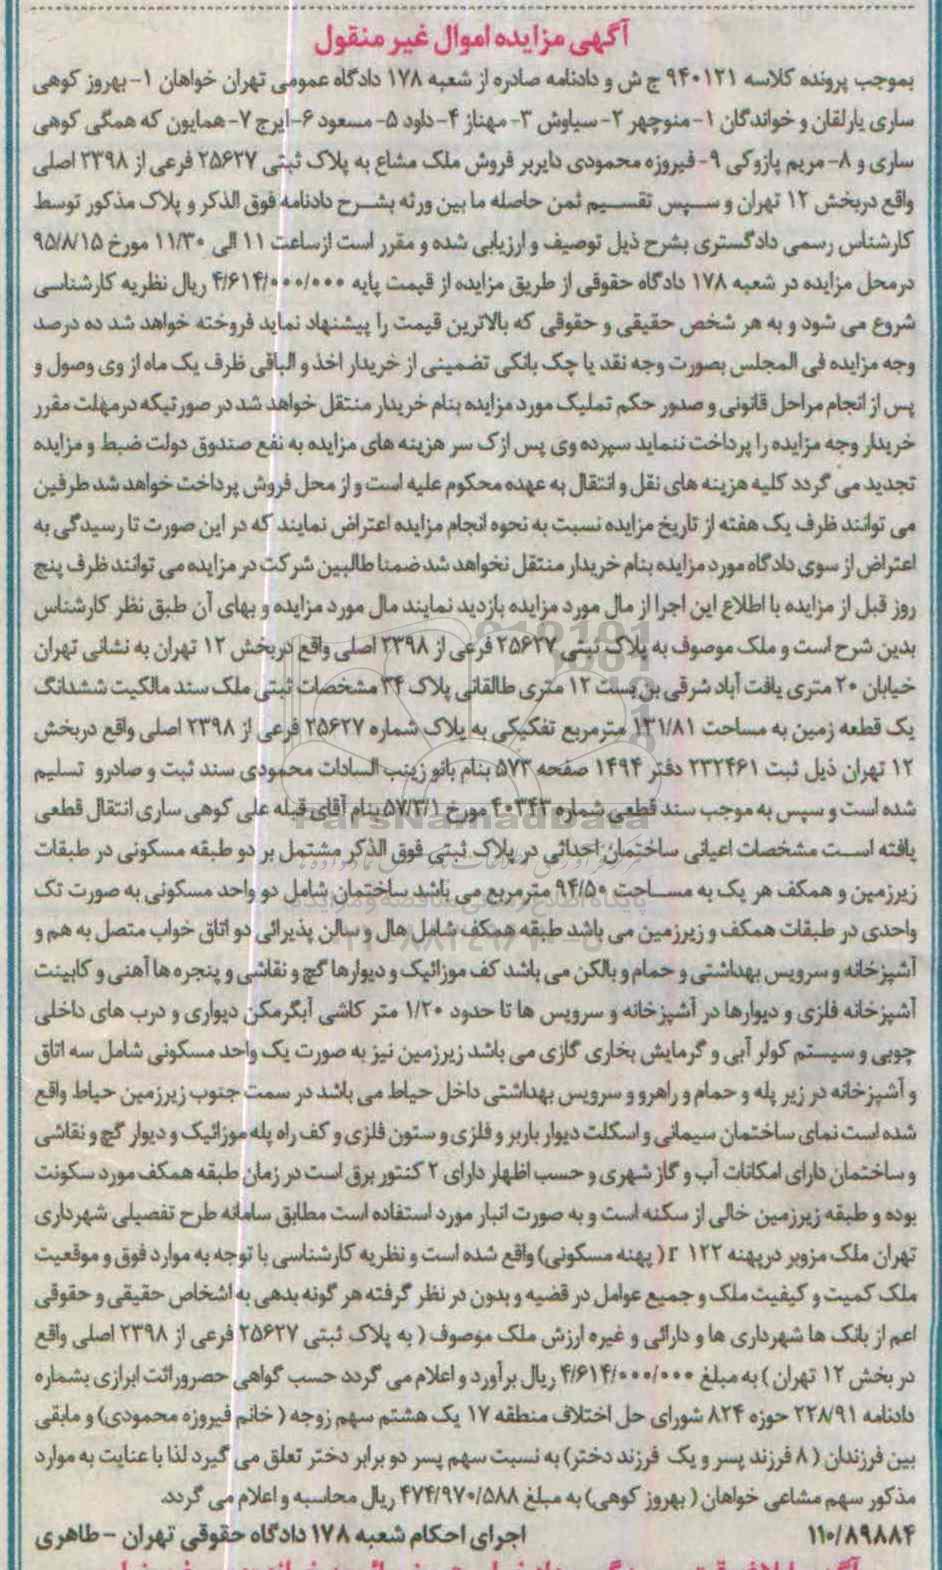 آگهی مزایده اموال غیر منقول
بموجب پرونده کلاسه ۹۴۰۱۲۱ ج ش و دادنامه صادره از شعبه ۱۷۸ دادگاه عمومی تهران خواهان ۱- بهروز کوهی
ساری یارلقان و خواندگان ۱- منوچهر ۲- سیاوش ۳- مهناز ۴- داود ۵- مسعود ۶-ایرج ۷- همایون که همگی کوهی
ساری و ۸- مریم پازوکی ۹- فیروزه محمودی دایربر فروش ملک مشاع به پلاک ثبتی ۲۵۶۲۷ فرعی از ۲۳۹۸ اصلی
واقع دربخش ۱۲ تهران و سپس تقسیم ثمن حاصله ما بین ورثه بشرح دادنامه فوق الذکر و پلاک مذکور توسط
کارشناس رسمی دادگستری بشرح ذیل توصیف و ارزیابی شده و مقرر است ازساعت ۱۱ الی ۱۱/۳۰ مورخ ۹۵/۸/۱۵
درمحل مزایده در شعبه ۱۷۸ دادگاه حقوقی از طریق مزایده از قیمت پایه ۴/۶۱۴/۰۰۰/۰۰۰ ریال نظریه کارشناسی
شروع می شود و به هر شخص حقیقی و حقوقی که بالاترین قیمت را پیشنهاد نماید فروخته خواهد شد ده درصد
وجه مزایده فی المجلس بصورت وجه نقد یا چک بانکی تضمینی از خریدار اخذ و الباقی ظرف یک ماه از وی وصول و
پس از انجام مراحل قانونی و صدور حکم تملیک مورد مزایده بنام خریدار منتقل خواهد شد در صورتیکه درمهلت مقرر
خریدار وجه مزایده را پرداخت ننماید سپرده وی پس ازک سر هزینه های مزایده به نفع صندوق دولت ضبط و مزایده
تجدید می گردد کلیه هزینه های نقل و انتقال به عهده محکوم علیه است و از محل فروش پرداخت خواهد شد طرفین
می توانند ظرف یک هفته از تاریخ مزایده نسبت به نحوه انجام مزایده اعتراض نمایند که در این صورت تا رسیدگی به
اعتراض از سوی دادگاه مورد مزایده بنام خریدار منتقل نخواهد شد ضمنا طالبین شرکت در مزایده می توانند ظرف پنج
روز قبل از مزایده با اطلاع این اجرا از مال مورد مزایده بازدید نمایند مال مورد مزایده و بهای آن طبق نظر کارشناس
بدین شرح است و ملک موصوف به پلاک ثبتی ۲۵۶۲۷ فرعی از ۲۳۹۸ اصلی واقع دربخش ۱۲ تهران به نشانی تهران
خیابان ۲۰ متری یافت آباد شرقی بن بست ۱۲ متری طالقانی پلاک ۳۴ مشخصات ثبتی ملک سند مالکیت ششدانگ
یک قطعه زمین به مساحت ۱۳۱/۸۱ مترمربع تفکیکی به پلاک شماره ۲۵۶۲۷ فرعی از ۲۳۹۸ اصلی واقع دربخش
۱۲ تهران ذیل ثبت ۲۳۲۴۶۱ دفتر ۱۴۹۴ صفحه ۵۷۳ بنام بانو زینب السادات محمودی سند ثبت و صادرو تسلیم
شده است و سپس به موجب سند قطعی شماره ۴۰۳۴۳ مورخ ۵۷/۳/۱ بنام آقای قبله علی کوهی ساری انتقال قطعی
یافته است مشخصات اعیانی ساختمان احداثی در پلاک ثبتی فوق الذکر مشتمل بر دو طبقه مسکونی در طبقات
زیرزمین و همکف هر یک به مساحت ۹۴/۵۰ مترمربع می باشد ساختمان شامل دو واحد مسکونی به صورت تک
واحدی در طبقات همکف و زیرزمین می باشد طبقه همکف شامل هال و سالن پذیرائی دو اتاق خواب متصل به هم و
آشپزخانه و سرویس بهداشتی و حمام و بالکن می باشد کف موزائیک و دیوارها گچ و نقاشی و پنجره ها آهنی و کابینت
آشپزخانه فلزی و دیوارها در آشپزخانه و سرویس ها تا حدود ۱/۲۰ متر کاشی آبگرمکن دیواری و درب های داخلی
چوبی و سیستم کولر آبی و گرمایش بخاری گازی می باشد زیرزمین نیز به صورت یک واحد مسکونی شامل سه اتاق
و آشپزخانه در زیر پله و حمام و راهرو و سرویس بهداشتی داخل حیاط می باشد در سمت جنوب زیرزمین حیاط واقع
شده است نمای ساختمان سیمانی و اسکلت دیوار باربر و فلزی و ستون فلزی و کف راه پله موزائیک و دیوار گچ و نقاشی
و ساختمان دارای امکانات آب و گاز شهری و حسب اظهار دارای ۲ کنتور برق است در زمان طبقه همکف مورد سکونت
بوده و طبقه زیرزمین خالی از سکنه است و به صورت انبار مورد استفاده است مطابق سامانه طرح تفصیلی شهرداری
تهران ملک مزبور درپهنه ۱۲۲ r ( پهنه مسکونی) واقع شده است و نظریه کارشناسی با توجه به موارد فوق و موقعیت
ملک کمیت و کیفیت ملک و جمیع عوامل در قضیه و بدون در نظر گرفته هر گونه بدهی به اشخاص حقیقی و حقوقی
اعم از بانک ها شهرداری ها و دارائی و غیره ارزش ملک موصوف ( به پلاک ثبتی ۲۵۶۲۷ فرعی از ۲۳۹۸ اصلی واقع
در بخش ۱۲ تهران ) به مبلغ ۴/۶۱۴/۰۰۰/۰۰۰ ریال برآورد و اعلام می گردد حسب گواهی حصروراثت ابرازی بشماره
دادنامه ۲۲۸/۹۱ حوزه ۸۲۴ شورای حل اختلاف منطقه ۱۷ یک هشتم سهم زوجه ( خانم فیروزه محمودی) و مابقی
بین فرزندان ( ۸ فرزند پسر و یک فرزند دختر) به نسبت سهم پسر دو برابر دختر تعلق می گیرد لذا با عنایت به موارد
مذکور سهم مشاعی خواهان ( بهروز کوهی) به مبلغ ۴۷۴/۹۷۰/۵۸۸ ریال محاسبه و اعلام می گردد.
۱۱۰/۸۹۸۸۴ اجرای احکام شعبه ۱۷۸ دادگاه حقوقی تهران - طاهری
ParsNamadData